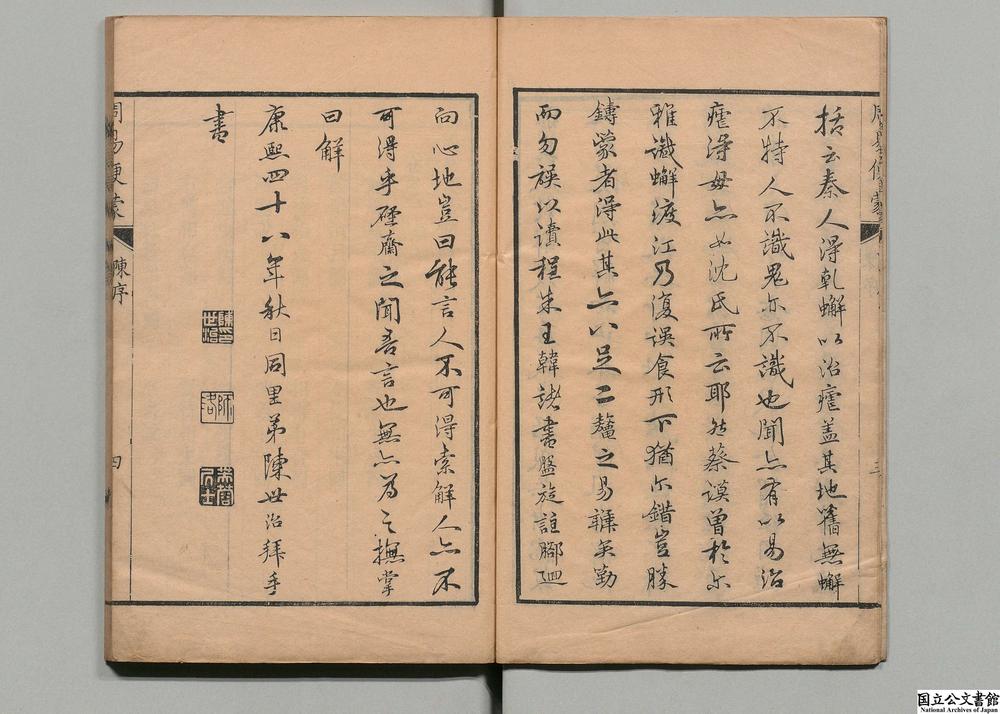 括云秦人得乾蠏以治瘧蓋其地舊無蠏
不特人不識鬼亦不識也聞亦有以易治
瘧得毋亦如沈氏所云耶然蔡謨曾於尔
雅識蠏渡江乃復誤食形下猶尔錯豈勝
鑄蒙者得此其亦八足二螯之易難矣勤
而勿誤以讀程朱王韓諸書盤旋註腳廻
向心地豈曰能言人不可得索解人亦不
可得乎硜齋之聞吾言也無亦為之撫掌
曰解
康熙四十八年秋日同里弟陳世治拜手
書
周易便蒙
陳序
三
四
国立公文書館
National Archives of Japan